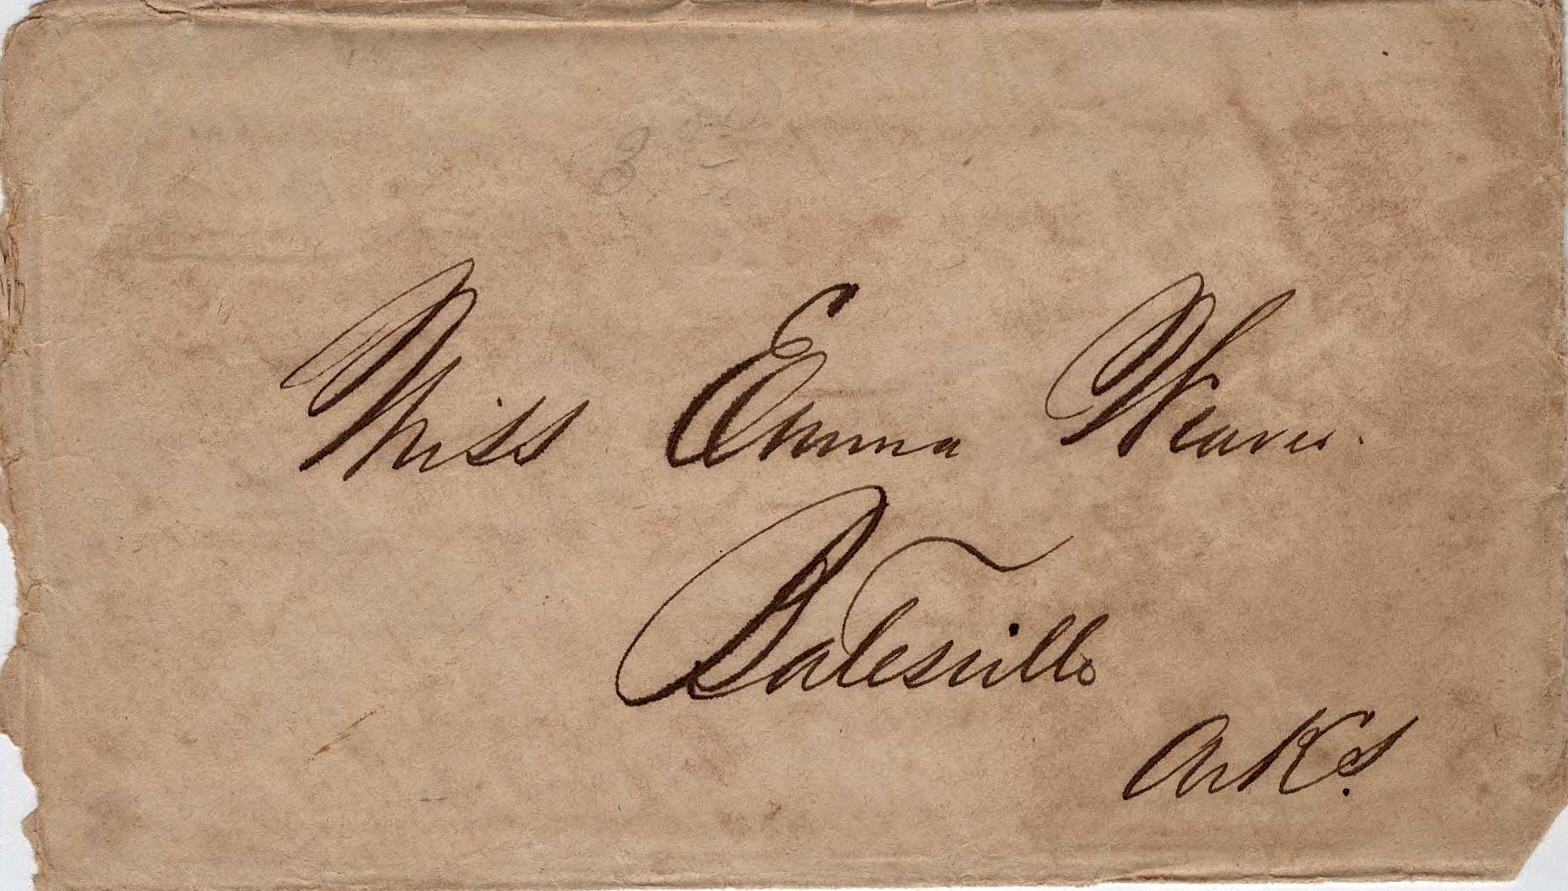 Miss Emma Weaver.
Batesville
Arks.